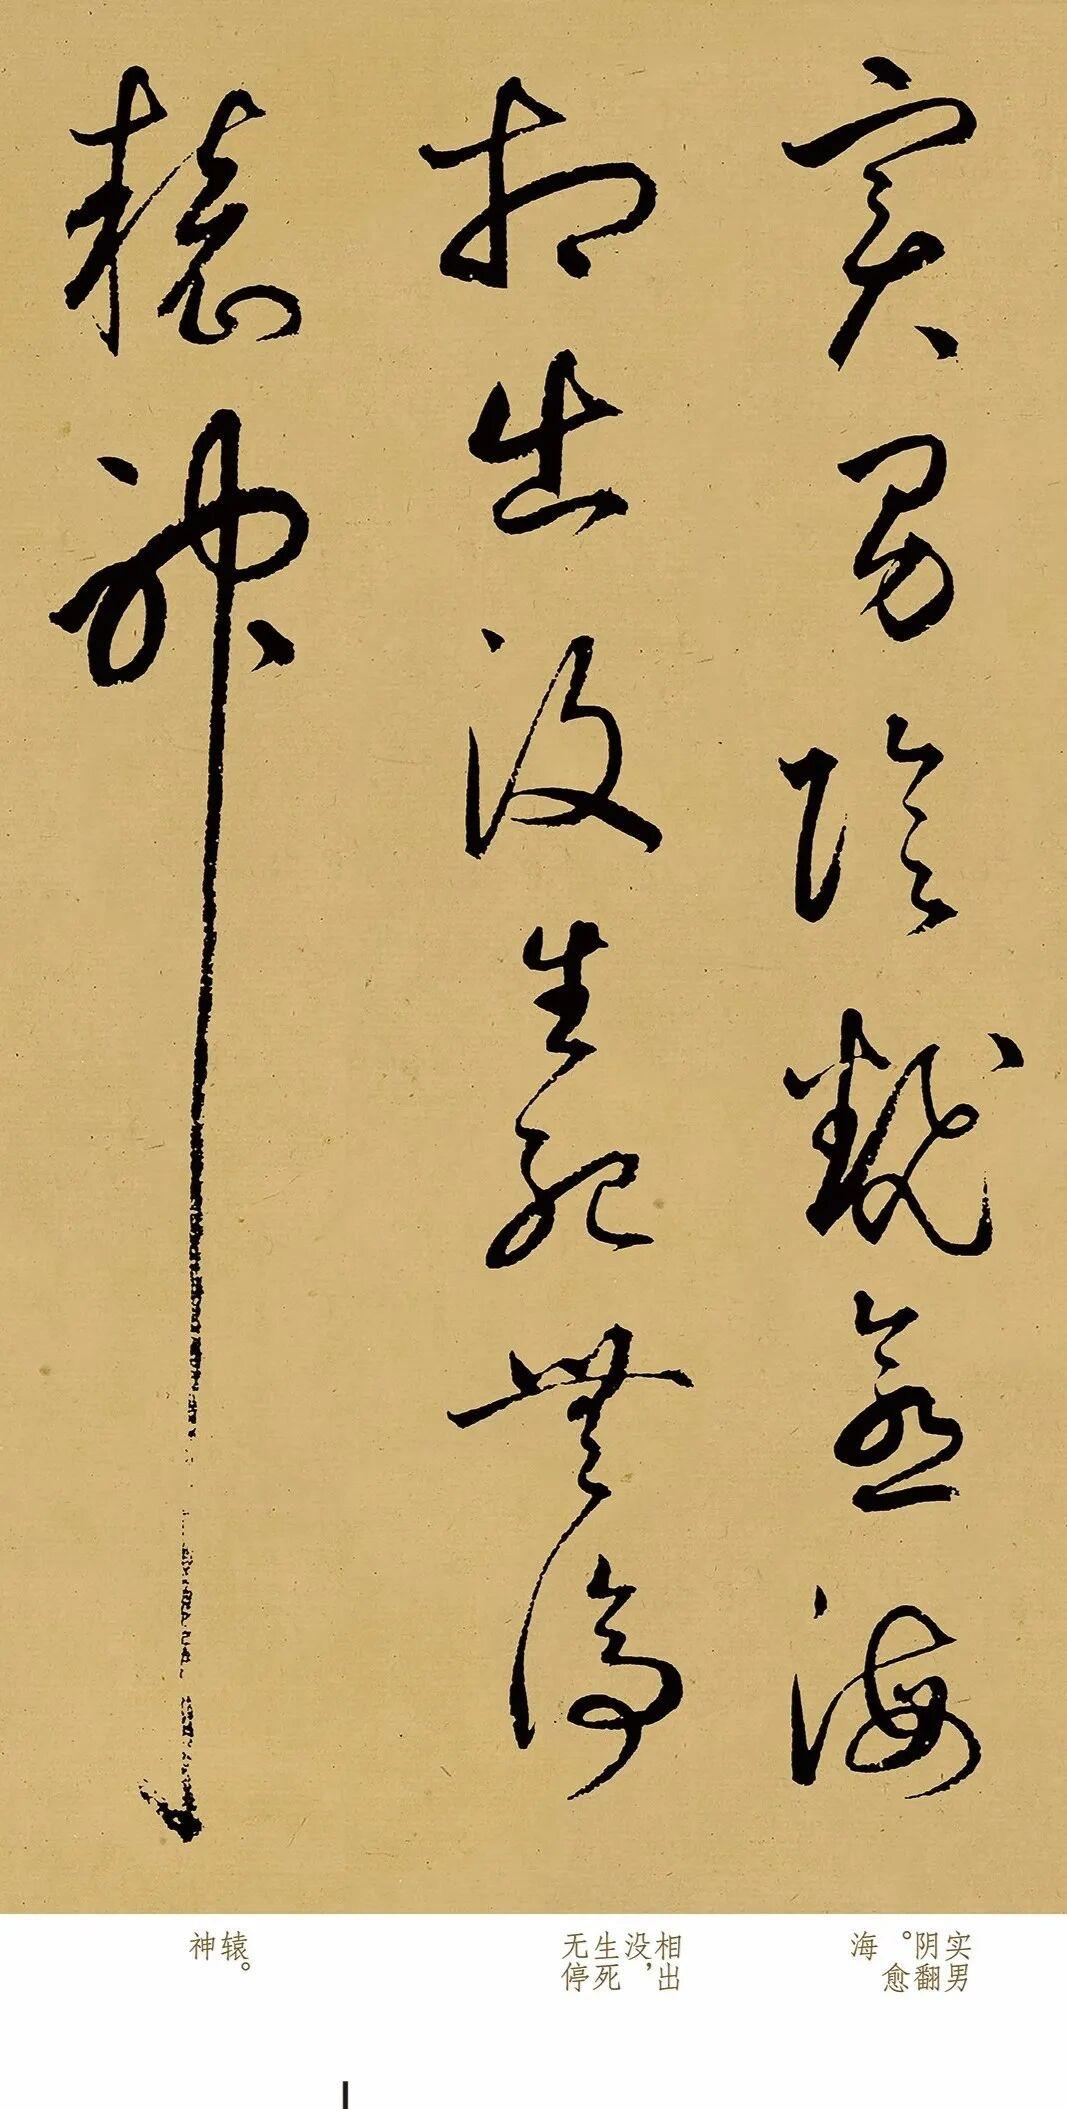 實男陰翻愈海
相出没生死無停
轅神
实男
阴翻
。愈
海
相出
没，
生死
无停
辕。
神